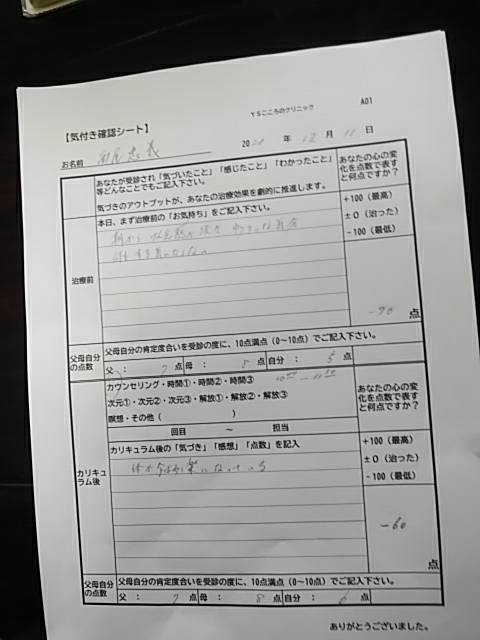 YSこころのクリニック
A01
【気付き確認シート】
お名前 忠義 20 年 12 月 11 日
あなたが受診され「気づいたこと」「感じたこと」「わかったこと」
等どんなことでもご記入下さい。
気づきのアウトプットが、あなたの治療効果を劇的に推進します。
あなたの心の変
化を点数で表す
と何点ですか？
治療前
本日、まず治療前の「お気持ち」をご記入下さい。
朝から
+100（最高）
±0（治った）
-100（最低）
-70 点
父母自分
の点数
父母自分の肯定度合いを受診の度に、10点満点（0～10点）でご記入下さい。
父： 7 点 母： 8 点 自分： 5 点
カリキュ
ラム後
カウンセリング・時間①・時間②・時間③
次元①・次元②・次元③・解放①・解放②・解放③
瞑想・その他（ ）
回目 ～ 担当
あなたの心の変
化を点数で表す
と何点ですか？
カリキュラム後の「気づき」「感想」「点数」を記入
楽になっている
+100（最高）
±0（治った）
-100（最低）
-60
点
父母自分
の点数
父母自分の肯定度合いを受診の度に、10点満点（0～10点）でご記入下さい。
父： 7 点 母： 8 点 自分： 6 点
ありがとうございました。